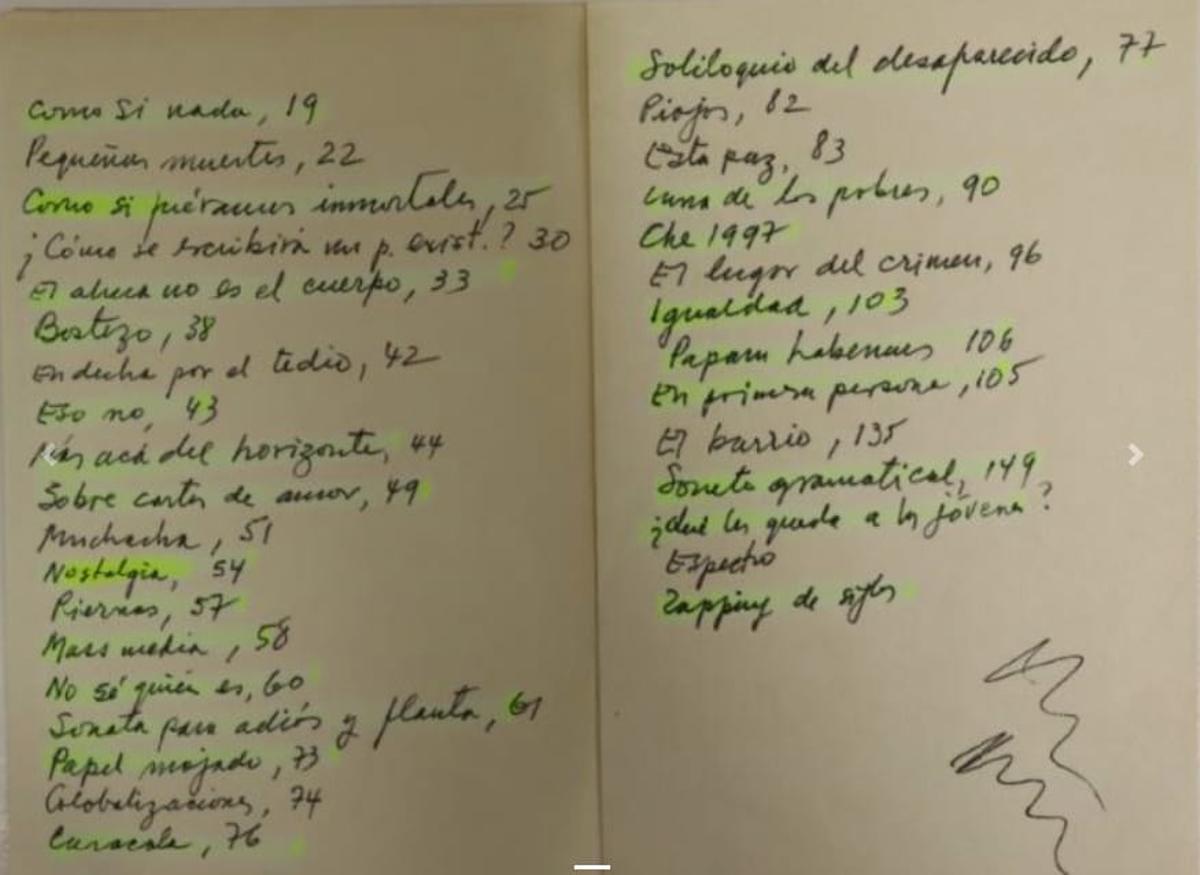 Como si nada, 19
Pequeñas muertes, 22
Como si fuéramos inmortales, 25
¿Cómo se escribirá un p. exist.? 30
El alma no es el cuerpo, 33
Bostezo, 38
Endecha por el tedio, 42
Eso no, 43
Más acá del horizonte, 44
Sobre cartas de amor, 49
Muchacha, 51
Nostalgia, 54
Piernas, 57
Mass media, 58
No sé quién es, 60
Sonata para adiós y flauta, 61
Papel mojado, 73
Globalizaciones, 74
Caracola, 76
Soliloquio del desaparecido, 77
Piojos, 82
Esta paz, 83
Luna de los pobres, 90
Che 1997
El lugar del crimen, 96
Igualdad, 103
Papam habemus 106
En primera persona, 105
El barrio, 135
Soneto gramatical, 149
¿Qué les queda a los jóvenes?
Espectro
Zapping de siglos